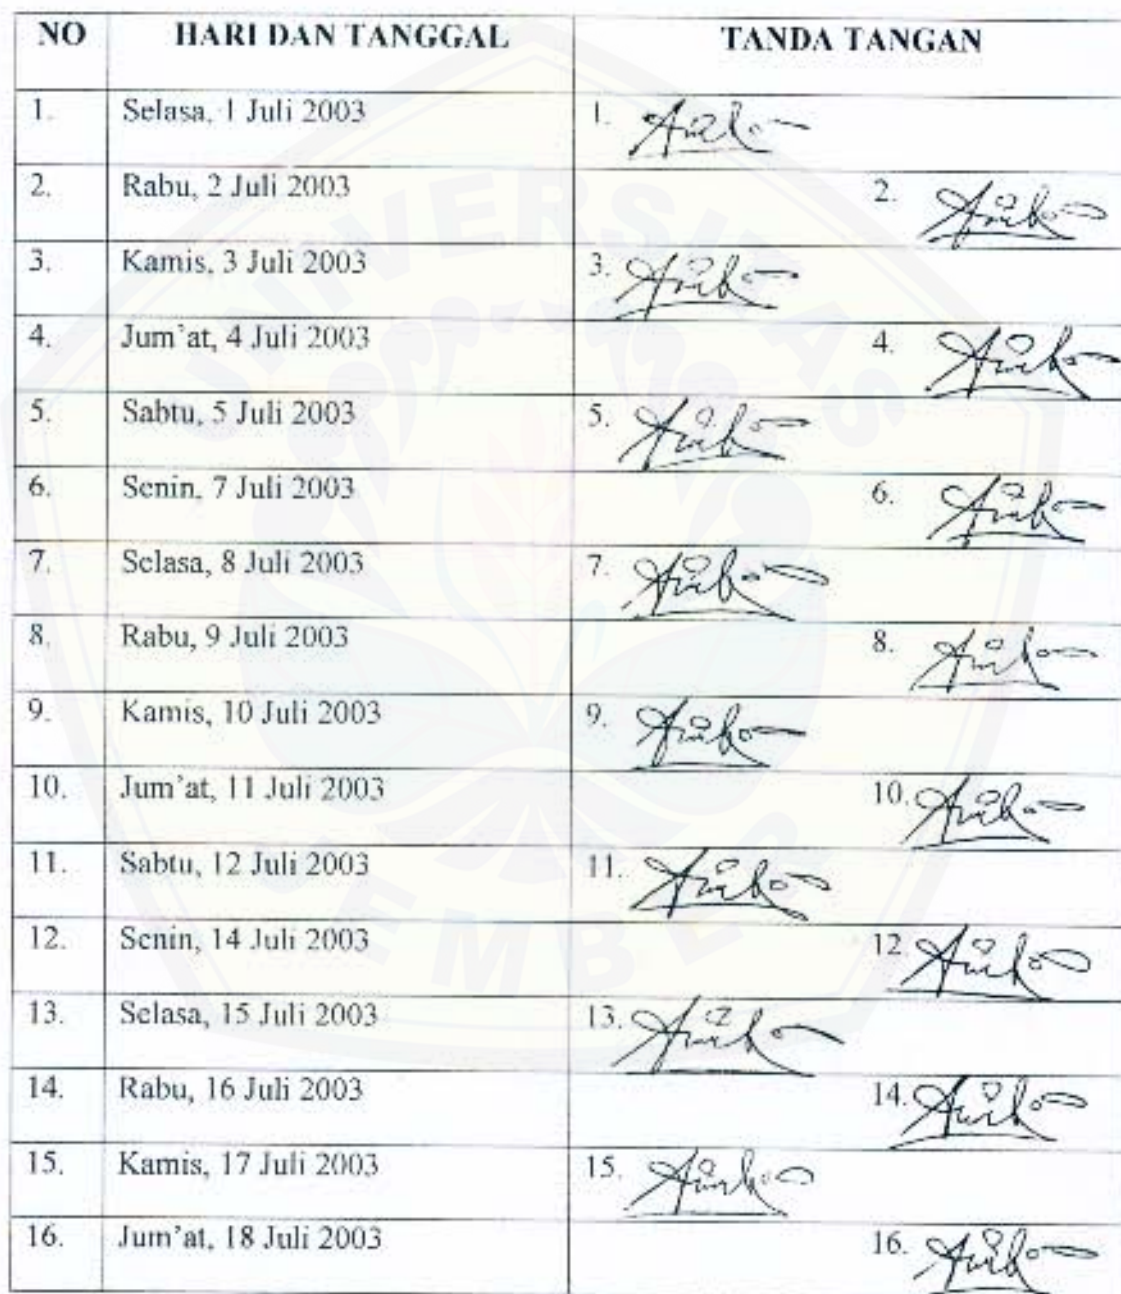 NO HARI DAN TANGGAL TANDA TANGAN
1. Selasa, 1 Juli 2003 1.
2. Rabu, 2 Juli 2003 2.
3. Kamis, 3 Juli 2003 3.
4. Jum'at, 4 Juli 2003 4.
5. Sabtu, 5 Juli 2003 5.
6. Senin, 7 Juli 2003 6.
7. Selasa, 8 Juli 2003 7.
8. Rabu, 9 Juli 2003 8.
9. Kamis, 10 Juli 2003 9.
10. Jum'at, 11 Juli 2003 10.
11. Sabtu, 12 Juli 2003 11.
12. Senin, 14 Juli 2003 12.
13. Selasa, 15 Juli 2003 13.
14. Rabu, 16 Juli 2003 14.
15. Kamis, 17 Juli 2003 15.
16. Jum'at, 18 Juli 2003 16.
UNIVERSITAS
JEMBER